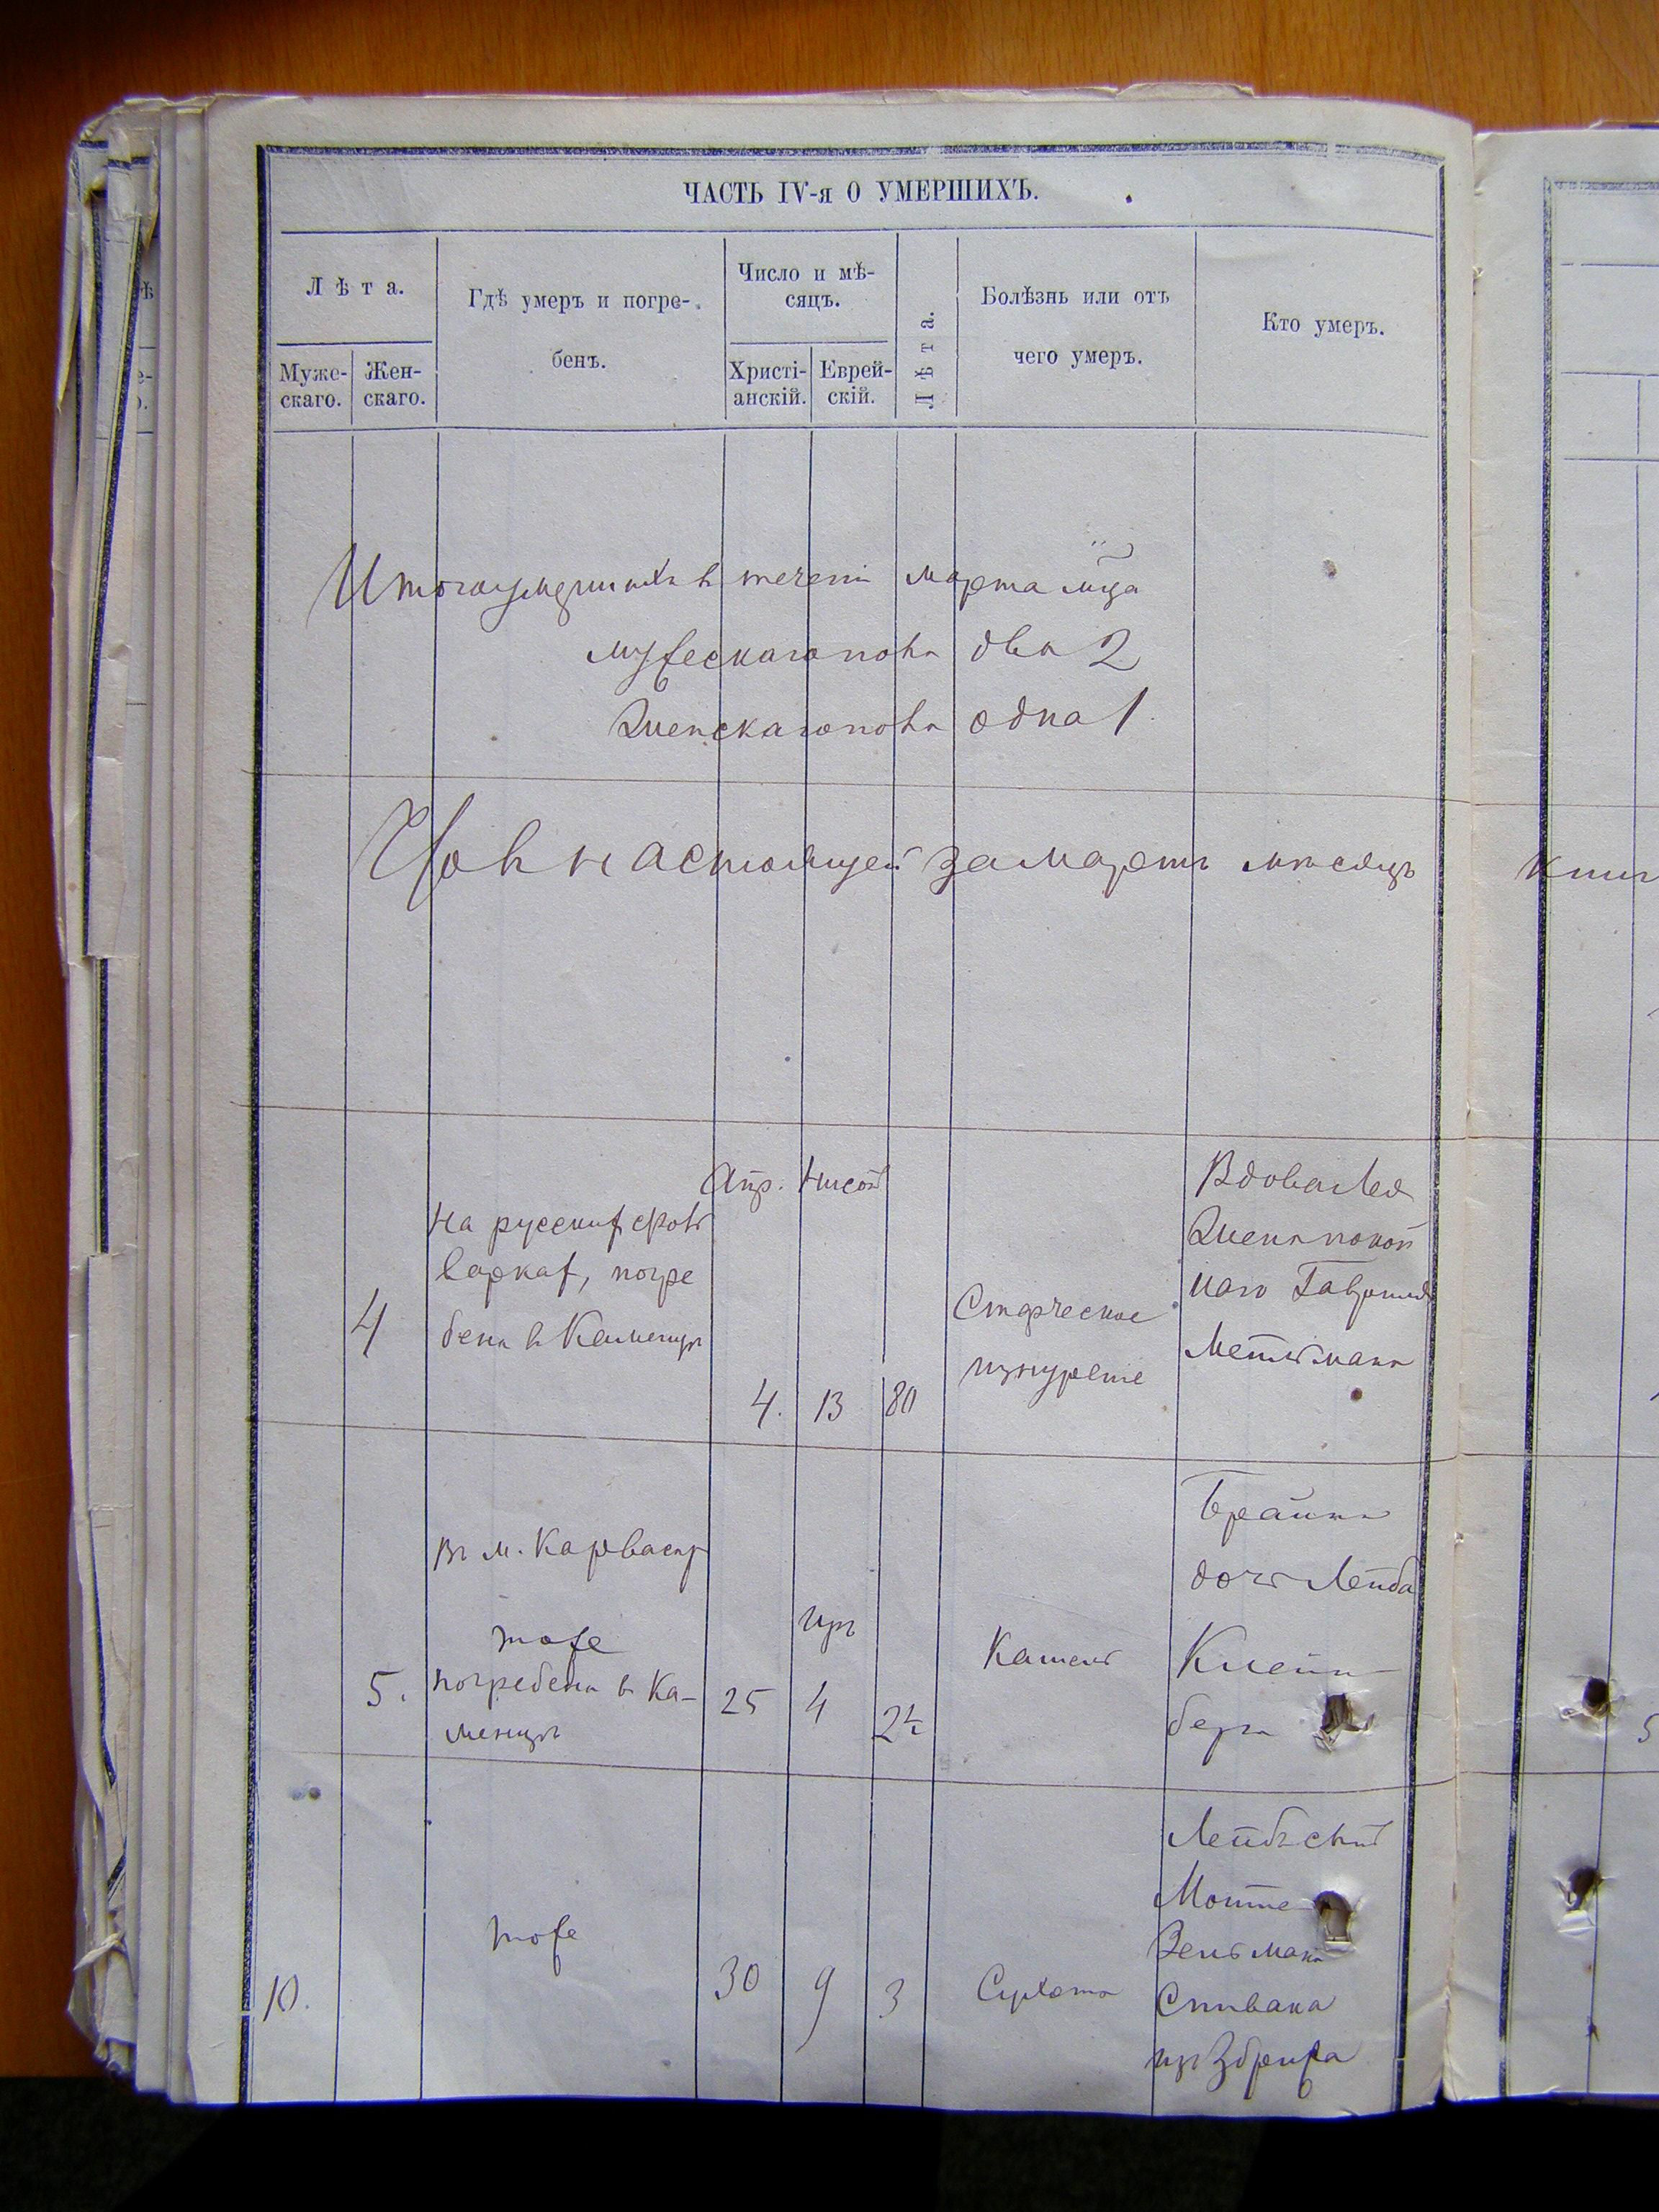 ЧАСТЬ IV-я О УМЕРШИХЪ.
Лѣта.
Мужескаго.
Женскаго.
Гдѣ умеръ и погре-
бенъ.
Число и мѣ-
сяцъ.
Христі-
анскій.
Еврей-
скій.
Лѣта.
Болѣзнь или отъ
чего умеръ.
Кто умеръ.
Итого умершихъ в течени марта мца
мужескаго пола два 2
женскаго пола одна 1.
Что в настоящей за мартъ мѣсяцъ
Апр. Нисон
4
На русских фоль
варках, погре
бена в Каменцѣ
4. 13 80
Старческое
изнурение
Вдова Лея
жена покой
наго
Мельмана
5.
Въ м. Карвасар
тоже
погребена в Ка-
менцѣ
25
Иръ
4
2½
Кашель
дочь Лейба
Клейн
берга
10.
тоже
30 9 3
Сухота
Лейбъ сын
Зельмана
Спивака
из Збрижа